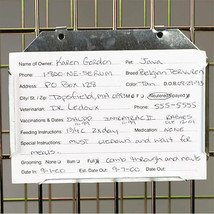 Name of Owner: Karen Gordon Pet: Java
Phone: 1-800-NE-SERUM Breed: Belgian Tervuren
Address: PO Box 128 Color: Tan D.O.B.
City / St. / Zip Topsfield, MA 01983
Veterinarian: Dr. Ledoux Phone: 555-5555
Vaccinations & Dates: DHLPP IMMRAB RABIES
Feeding Instructions: 1 1/4 C 2x day Medication: NONE
Special Instructions: must lie down and wait for
meals.
Grooming: None Bath Full comb through and nails
Date In: 9-1-00 Est. Date Out: 9-7-00 Date Out: